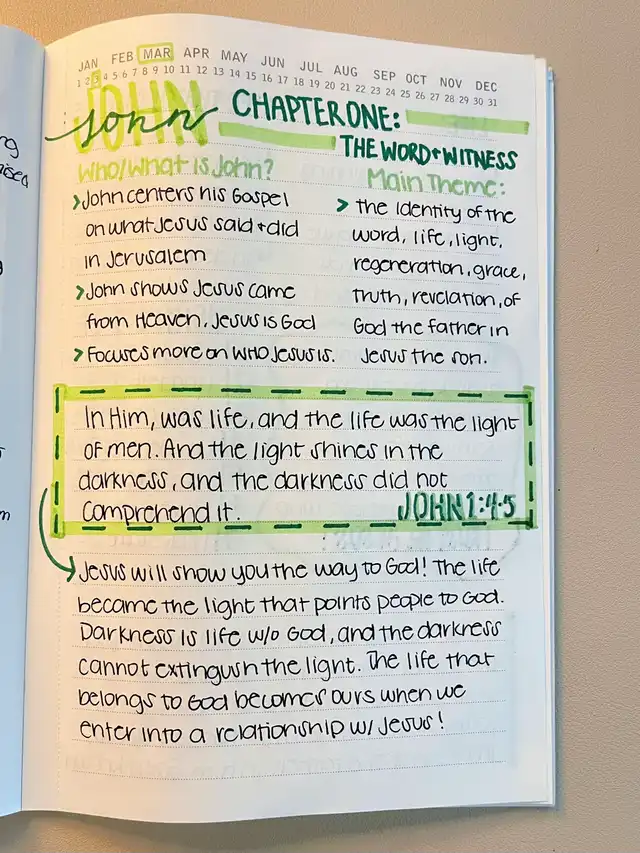 JAN FEB MAR APR MAY JUN JUL AUG SEP OCT NOV DEC
1 2 3 4 5 6 7 8 9 10 11 12 13 14 15 16 17 18 19 20 21 22 23 24 25 26 27 28 29 30 31
JOHN
John
CHAPTER ONE:
THE WORD + WITNESS
Who/What is John?
John centers his Gospel
on what Jesus said + did
in Jerusalem
John shows Jesus came
from Heaven, Jesus is God
Focuses more on WHO Jesus is.
Main Theme:
the identity of the
word, life, light,
regeneration, grace,
truth, revelation, of
God the father in
Jesus the son.
In Him, was life, and the life was the light
of men. And the light shines in the
darkness, and the darkness did not
comprehend it.
JOHN 1:4-5
Jesus will show you the way to God! The life
became the light that points people to God.
Darkness is life w/o God, and the darkness
cannot extinguish the light. The life that
belongs to God becomes ours when we
enter into a relationship w/ Jesus!